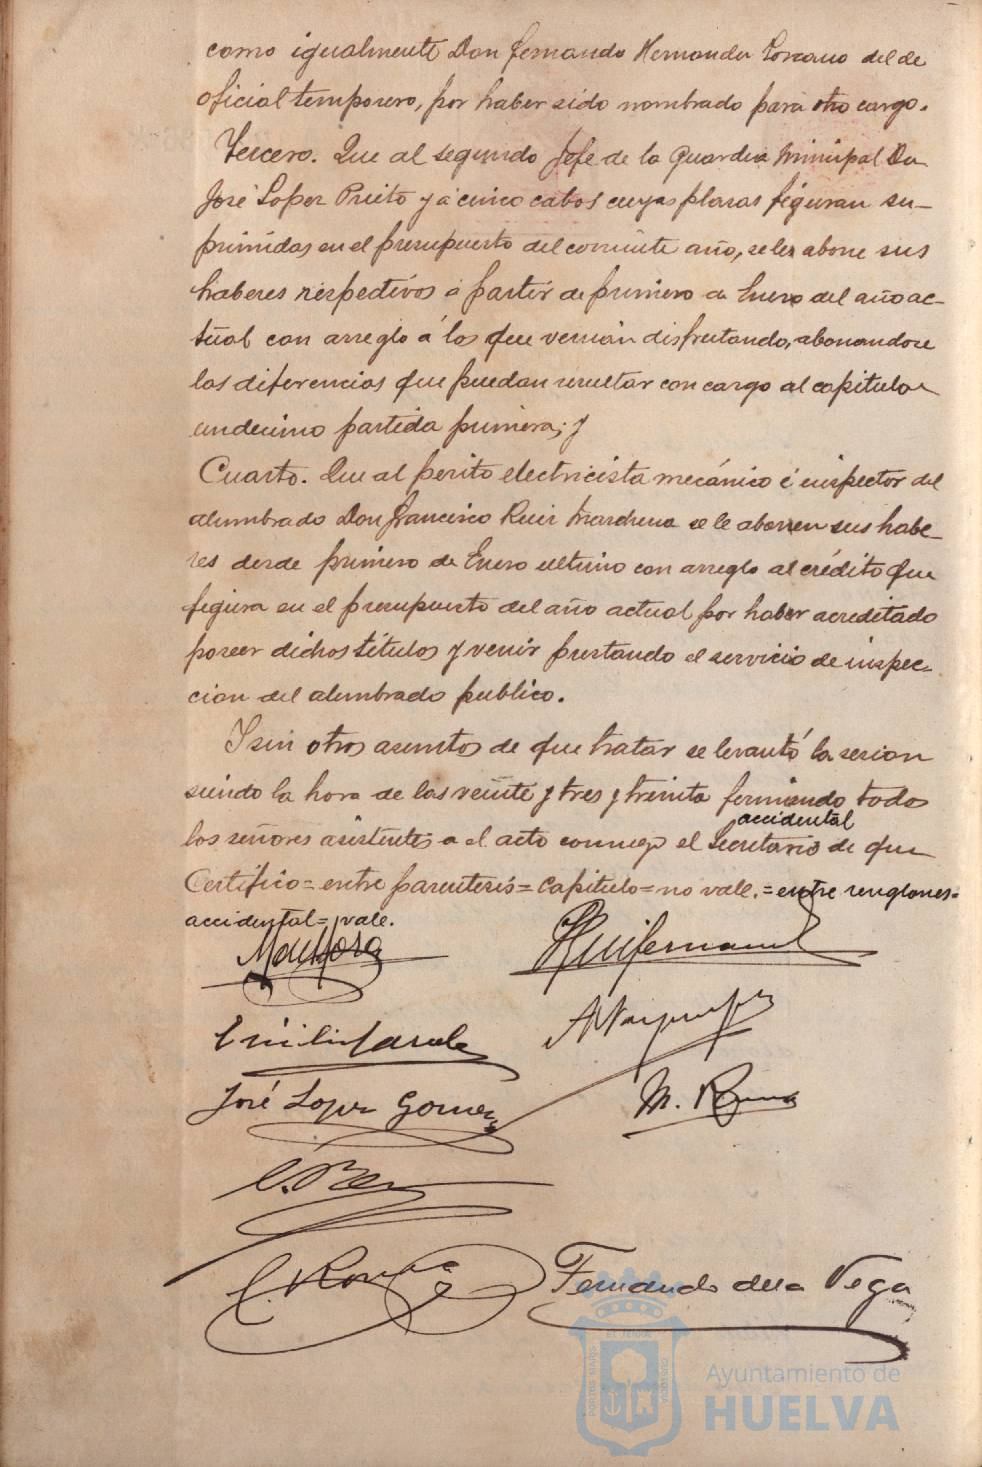 como igualmente Don Fernando Hernandez Lorzano del de
oficial temporero, por haber sido nombrado para otro cargo.
Tercero. Que al segundo Jefe de la Guardia Municipal Dn
José Lopez Prieto y á cinco cabos cuyas plazas figuran su-
primidas en el presupuesto del corriente año, se les abone sus
haberes respectivos á partir de primero de Enero del año ac-
tual con arreglo á los que venian disfrutando, abonandose
las diferencias que puedan resultar con cargo al capitulo
undecimo partida primera; y
Cuarto. Que al perito electricista mecánico é inspector del
alumbrado Don Francisco Ruiz Marchena se le abonen sus habe-
res desde primero de Enero ultimo con arreglo al crédito que
figura en el presupuesto del año actual por haber acreditado
poseer dichos títulos y venir prestando el servicio de inspec-
cion del alumbrado publico.
Y sin otros asuntos de que tratar se levantó la sesion
siendo la hora de las veinte y tres y treinta firmando todos
accidental
los señores asistentes a el acto conmigo el Secretario de que
Certifico = entre parentesis = capitulo = no vale. = entre renglones =
accidental = vale.
José Lopez Gomez
Fernando de la Vega
EL TERRAE
PORTUS MARIS
CUSTODIA
Ayuntamiento de
HUELVA